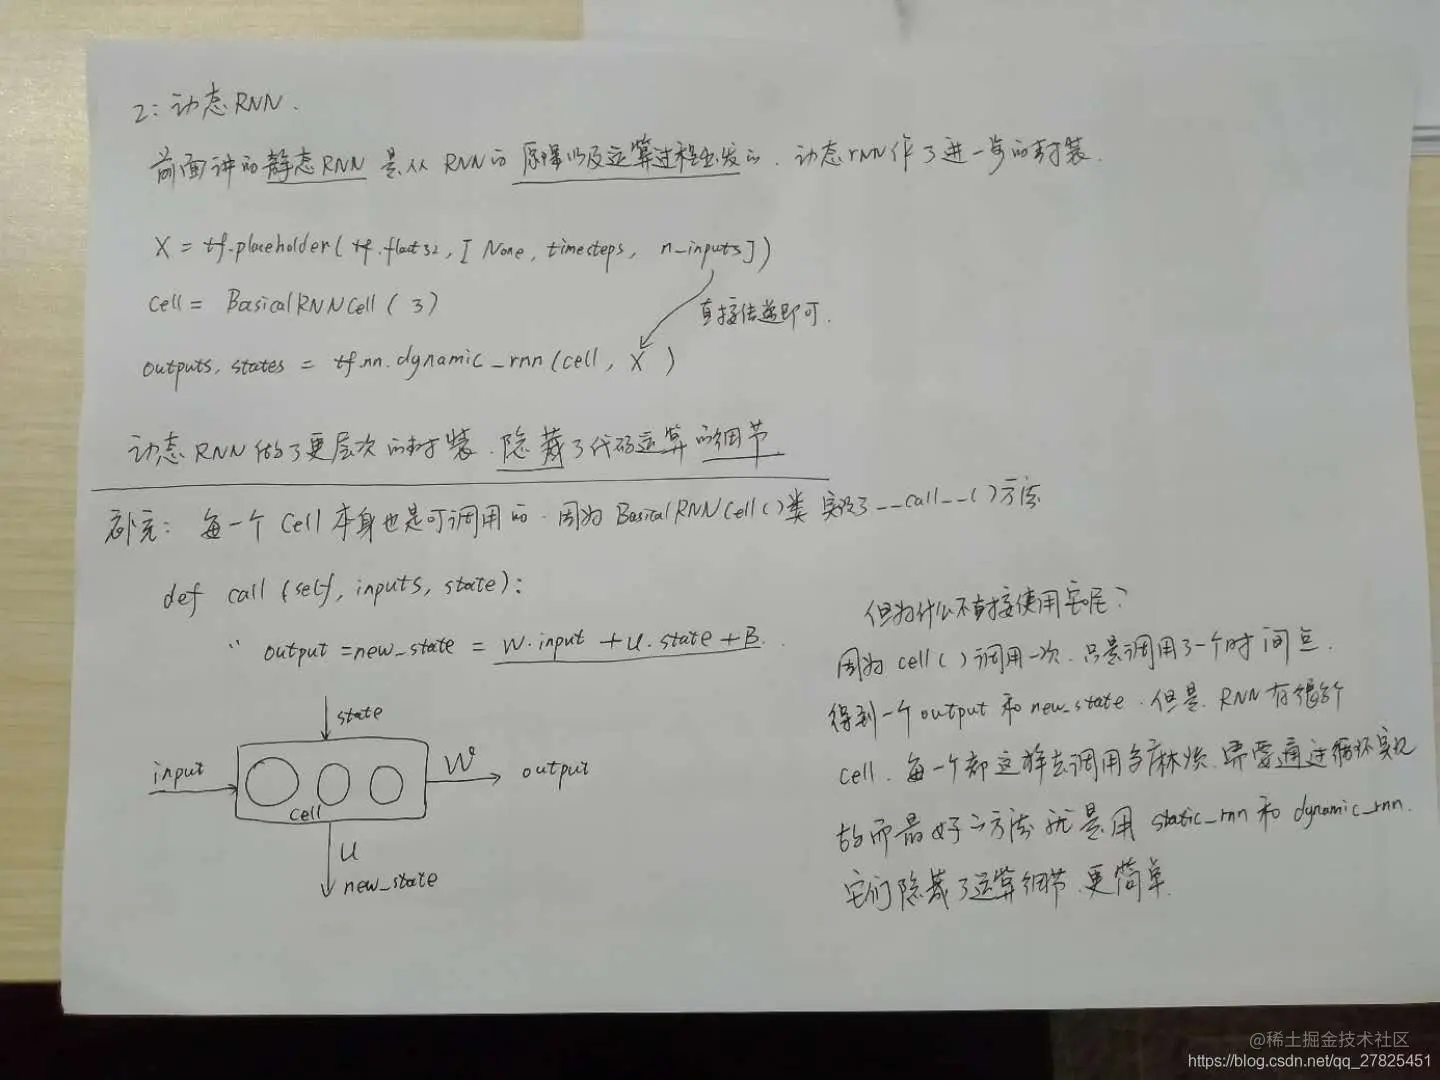 2: 动态RNN.
前面讲的静态RNN 是从 RNN的 原理以及运算过程出发的. 动态rnn作了进一步的封装.
X = tf.placeholder( tf.float32, [ None, timesteps, n_inputs])
cell = BasicalRNNCell( 3)
直接传递即可.
outputs, states = tf.nn.dynamic_rnn(cell, X )
动态RNN做了更层次的封装. 隐藏了代码运算的细节
补充: 每一个 Cell 本身也是可调用的. 因为 BasicalRNNCell()类 实现了 __call__()方法
def call (self, inputs, state):
" output = new_state = W·input + U·state + B.
state
input
cell
W
output
U
new_state
但为什么不直接使用它呢?
因为 cell() 调用一次. 只是调用了一个时间点.
得到一个output 和 new_state. 但是. RNN有很多个
cell. 每一个都这样去调用多麻烦. 需要通过循环实现
故而最好的方法就是用 static_rnn 和 dynamic_rnn.
它们隐藏了运算细节. 更简单.
@稀土掘金技术社区
https://blog.csdn.net/qq_27825451